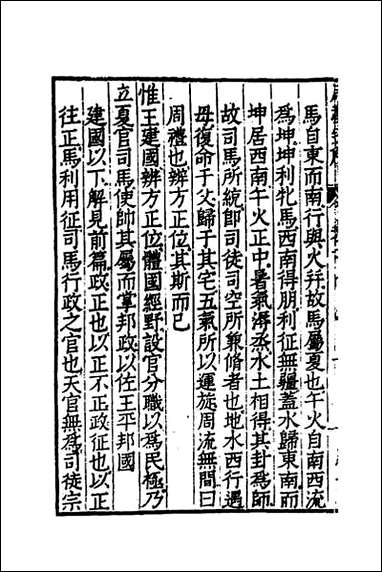 馬自東而南行與火幷故馬屬夏也午火自南西流
爲坤坤利牝馬西南得朋利征無疆蓋水歸東南而
坤居西南午火正中暑氣溽蒸水土相得其卦爲師
故司馬所統卽司徒司空所兼脩者也地水西行遇
毋復命于父歸于其宅五氣所以運旋周流無間曰
周禮也辨方正位其斯而已
惟王建國辨方正位體國經野設官分職以爲民極乃
立夏官司馬使帥其屬而掌邦政以佐王平邦國
建國以下解見前篇政正也以正不正政征也以正
往正馬利用征司馬行政之官也天官無爲司徒宗